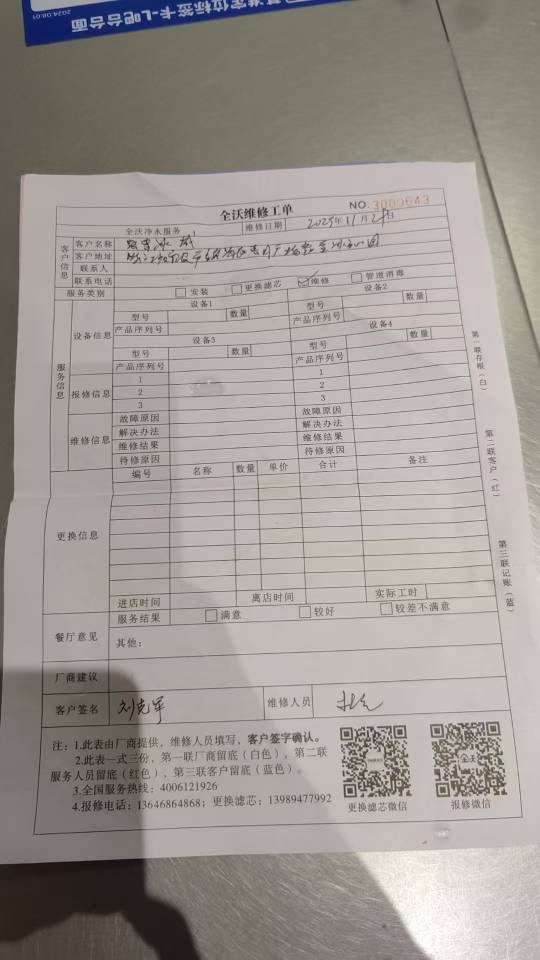 2024.08.01
基准定位标签卡-L吧台面
全沃维修工单
NO. 3000643
全沃净水服务 维修日期 2025年11月21日
客户信息
客户名称
客户地址
联系人
联系电话
服务类别 安装 更换滤芯 维修 管道消毒
服务信息
设备信息
设备1 设备2
型号 数量 型号 数量
产品序列号 产品序列号
设备3 设备4
型号 数量 型号 数量
产品序列号 产品序列号
报修信息
1 1
2 2
3 3
维修信息
故障原因 故障原因
解决办法 解决办法
维修结果 维修结果
待修原因 待修原因
更换信息
编号 名称 数量 单价 合计 备注
进店时间 离店时间 实际工时
餐厅意见
服务结果 满意 较好 较差不满意
其他：
厂商建议
客户签名 刘克军 维修人员
注：1.此表由厂商提供，维修人员填写，客户签字确认。
2.此表一式三份，第一联厂商留底（白色），第二联
服务人员留底（红色），第三联客户留底（蓝色）。
3.全国服务热线：4006121926
4.报修电话：13646864868；更换滤芯：13989477992
更换滤芯微信
全天
报修微信
第一联存根（白）
第二联客户（红）
第三联记账（蓝）